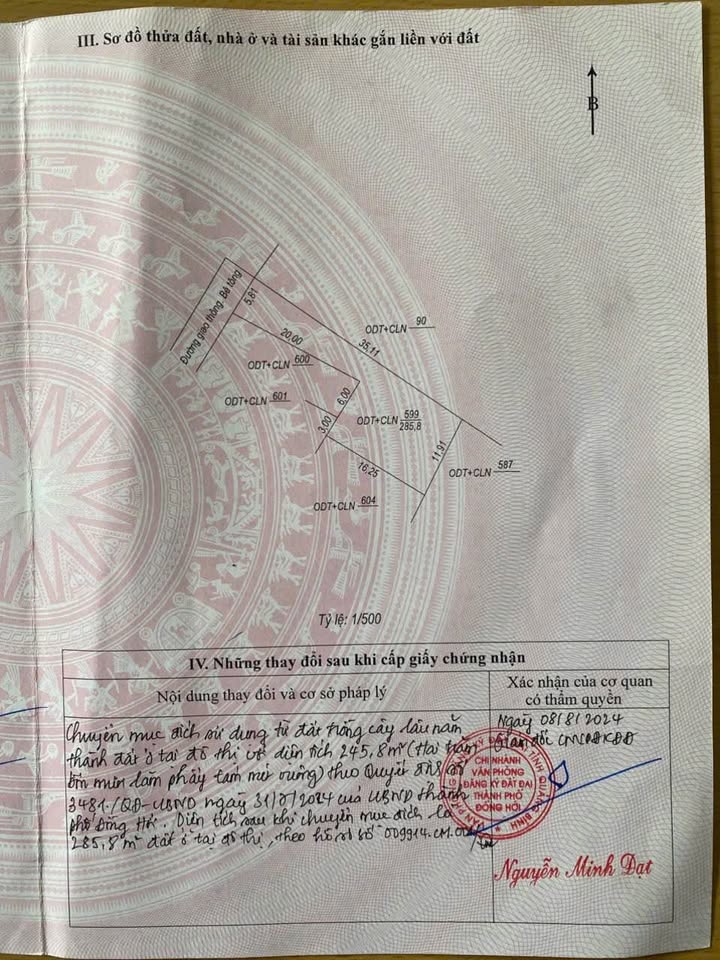 III. Sơ đồ thửa đất, nhà ở và tài sản khác gắn liền với đất
B
Đường giao thông Bê tông
5,81
20,00
ODT+CLN 90
35,11
ODT+CLN 600
ODT+CLN 601
6,00
3,00
ODT+CLN 599
285,8
11,91
16,25
ODT+CLN 587
ODT+CLN 604
Tỷ lệ: 1/500
IV. Những thay đổi sau khi cấp giấy chứng nhận
Nội dung thay đổi và cơ sở pháp lý
Xác nhận của cơ quan
có thẩm quyền
Chuyển mục đích sử dụng từ đất trồng cây lâu năm
thành đất ở tại đô thị với diện tích 245,8m² (Hai trăm
bốn mươi lăm phẩy tám mét vuông) theo Quyết định số
3481/QĐ-UBND ngày 31/7/2024 của UBND thành
phố Đồng Hới. Diện tích sau khi chuyển mục đích là
285,8 m² đất ở tại đô thị, theo hồ sơ số 009914.CM.
Ngày 08/8/2024
Giám đốc CNVPĐKĐĐ
CHI NHÁNH
VĂN PHÒNG
ĐĂNG KÝ ĐẤT ĐAI
THÀNH PHỐ
ĐỒNG HỚI
Nguyễn Minh Đạt